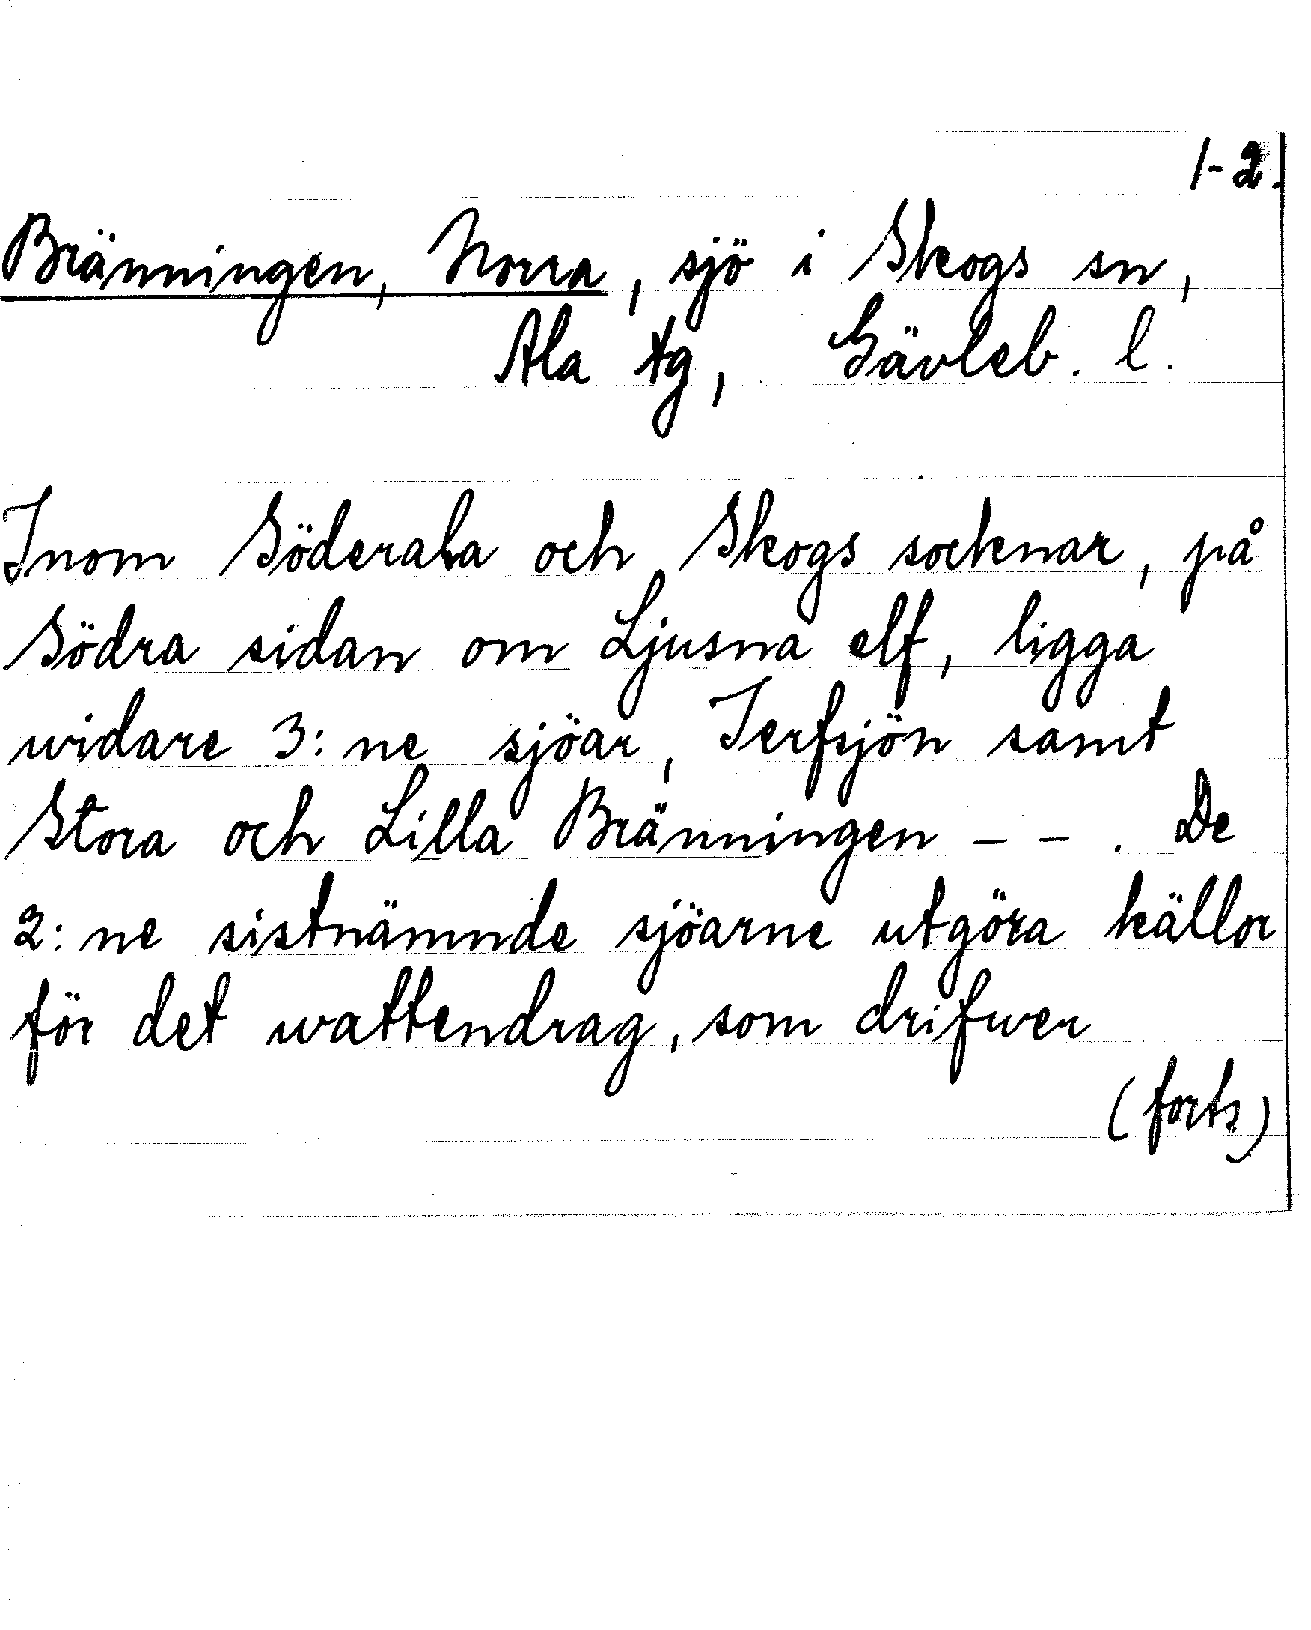 1-2.
Bränningen, Norra, sjö i Skogs sn,
Ala tg, Gävleb. l.
Inom Söderala och Skogs socknar, på
Södra sidan om Ljusna elf, ligga
widare 3:ne sjöar, Terfsjön samt
Stora och Lilla Bränningen - - . De
2:ne sistnämnde sjöarne utgöra källor
för det wattendrag, som drifwer
(forts)